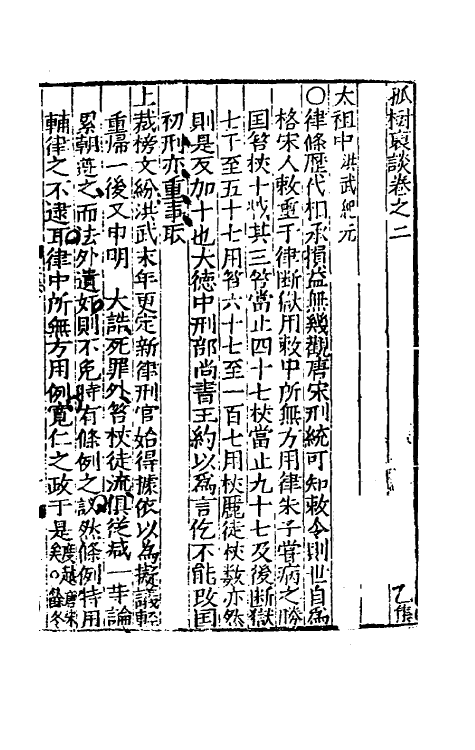 孤樹裒談卷之二 乙集
太祖中 洪武紀元
○律條歷代相承損益無幾觀唐宋刑統可知敕令則世自爲
格宋人敕重于律斷獄用敕中所無方用律朱子嘗病之勝
国笞杖十減其三笞當止四十七杖當止九十七及後斷獄
七下至五十七用笞六十七至一百七用杖麗徒杖数亦然
則是反加十也大德中刑部尚書王約以爲言仡不能改国
初刑亦重事取
上裁榜文紛洪武末年更定新律刑官始得據依以爲擬議輕
重歸一後又申明 大誥死罪外笞杖徒流俱從减一等論
累朝遵之而法外遺奸則不免時有條例之議然條例特用
輔律之不逮耳律中所無方用例寬仁之政于是矣